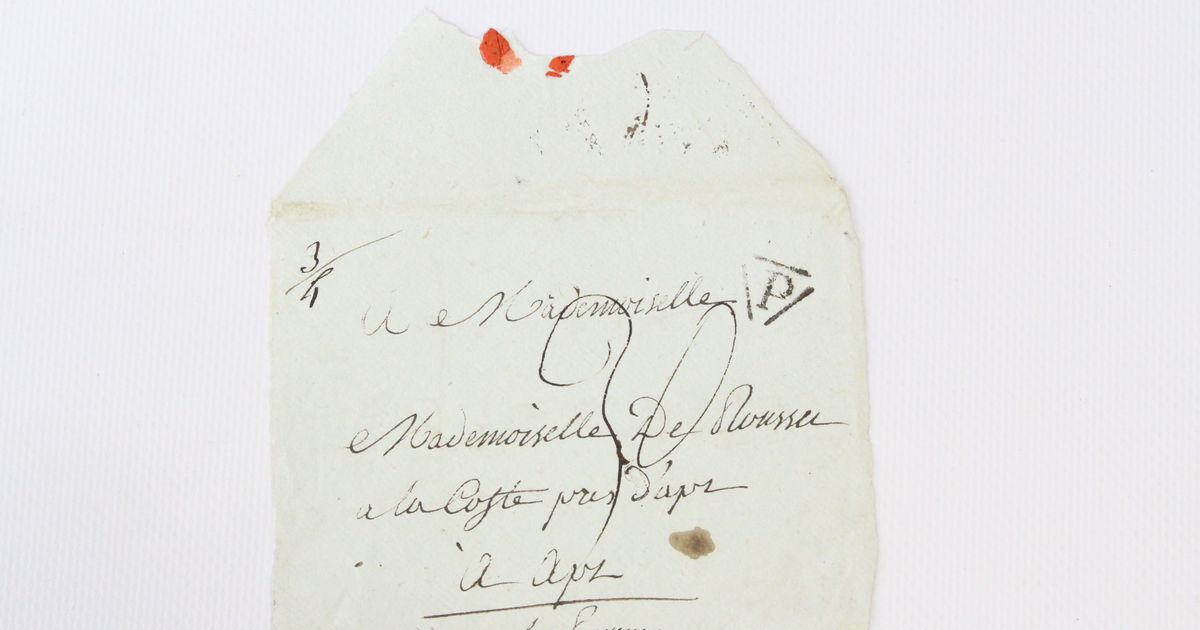 3/4
A Mademoiselle
P
30
Mademoiselle De Rousset
a la Coste pres d'apt
À Apt